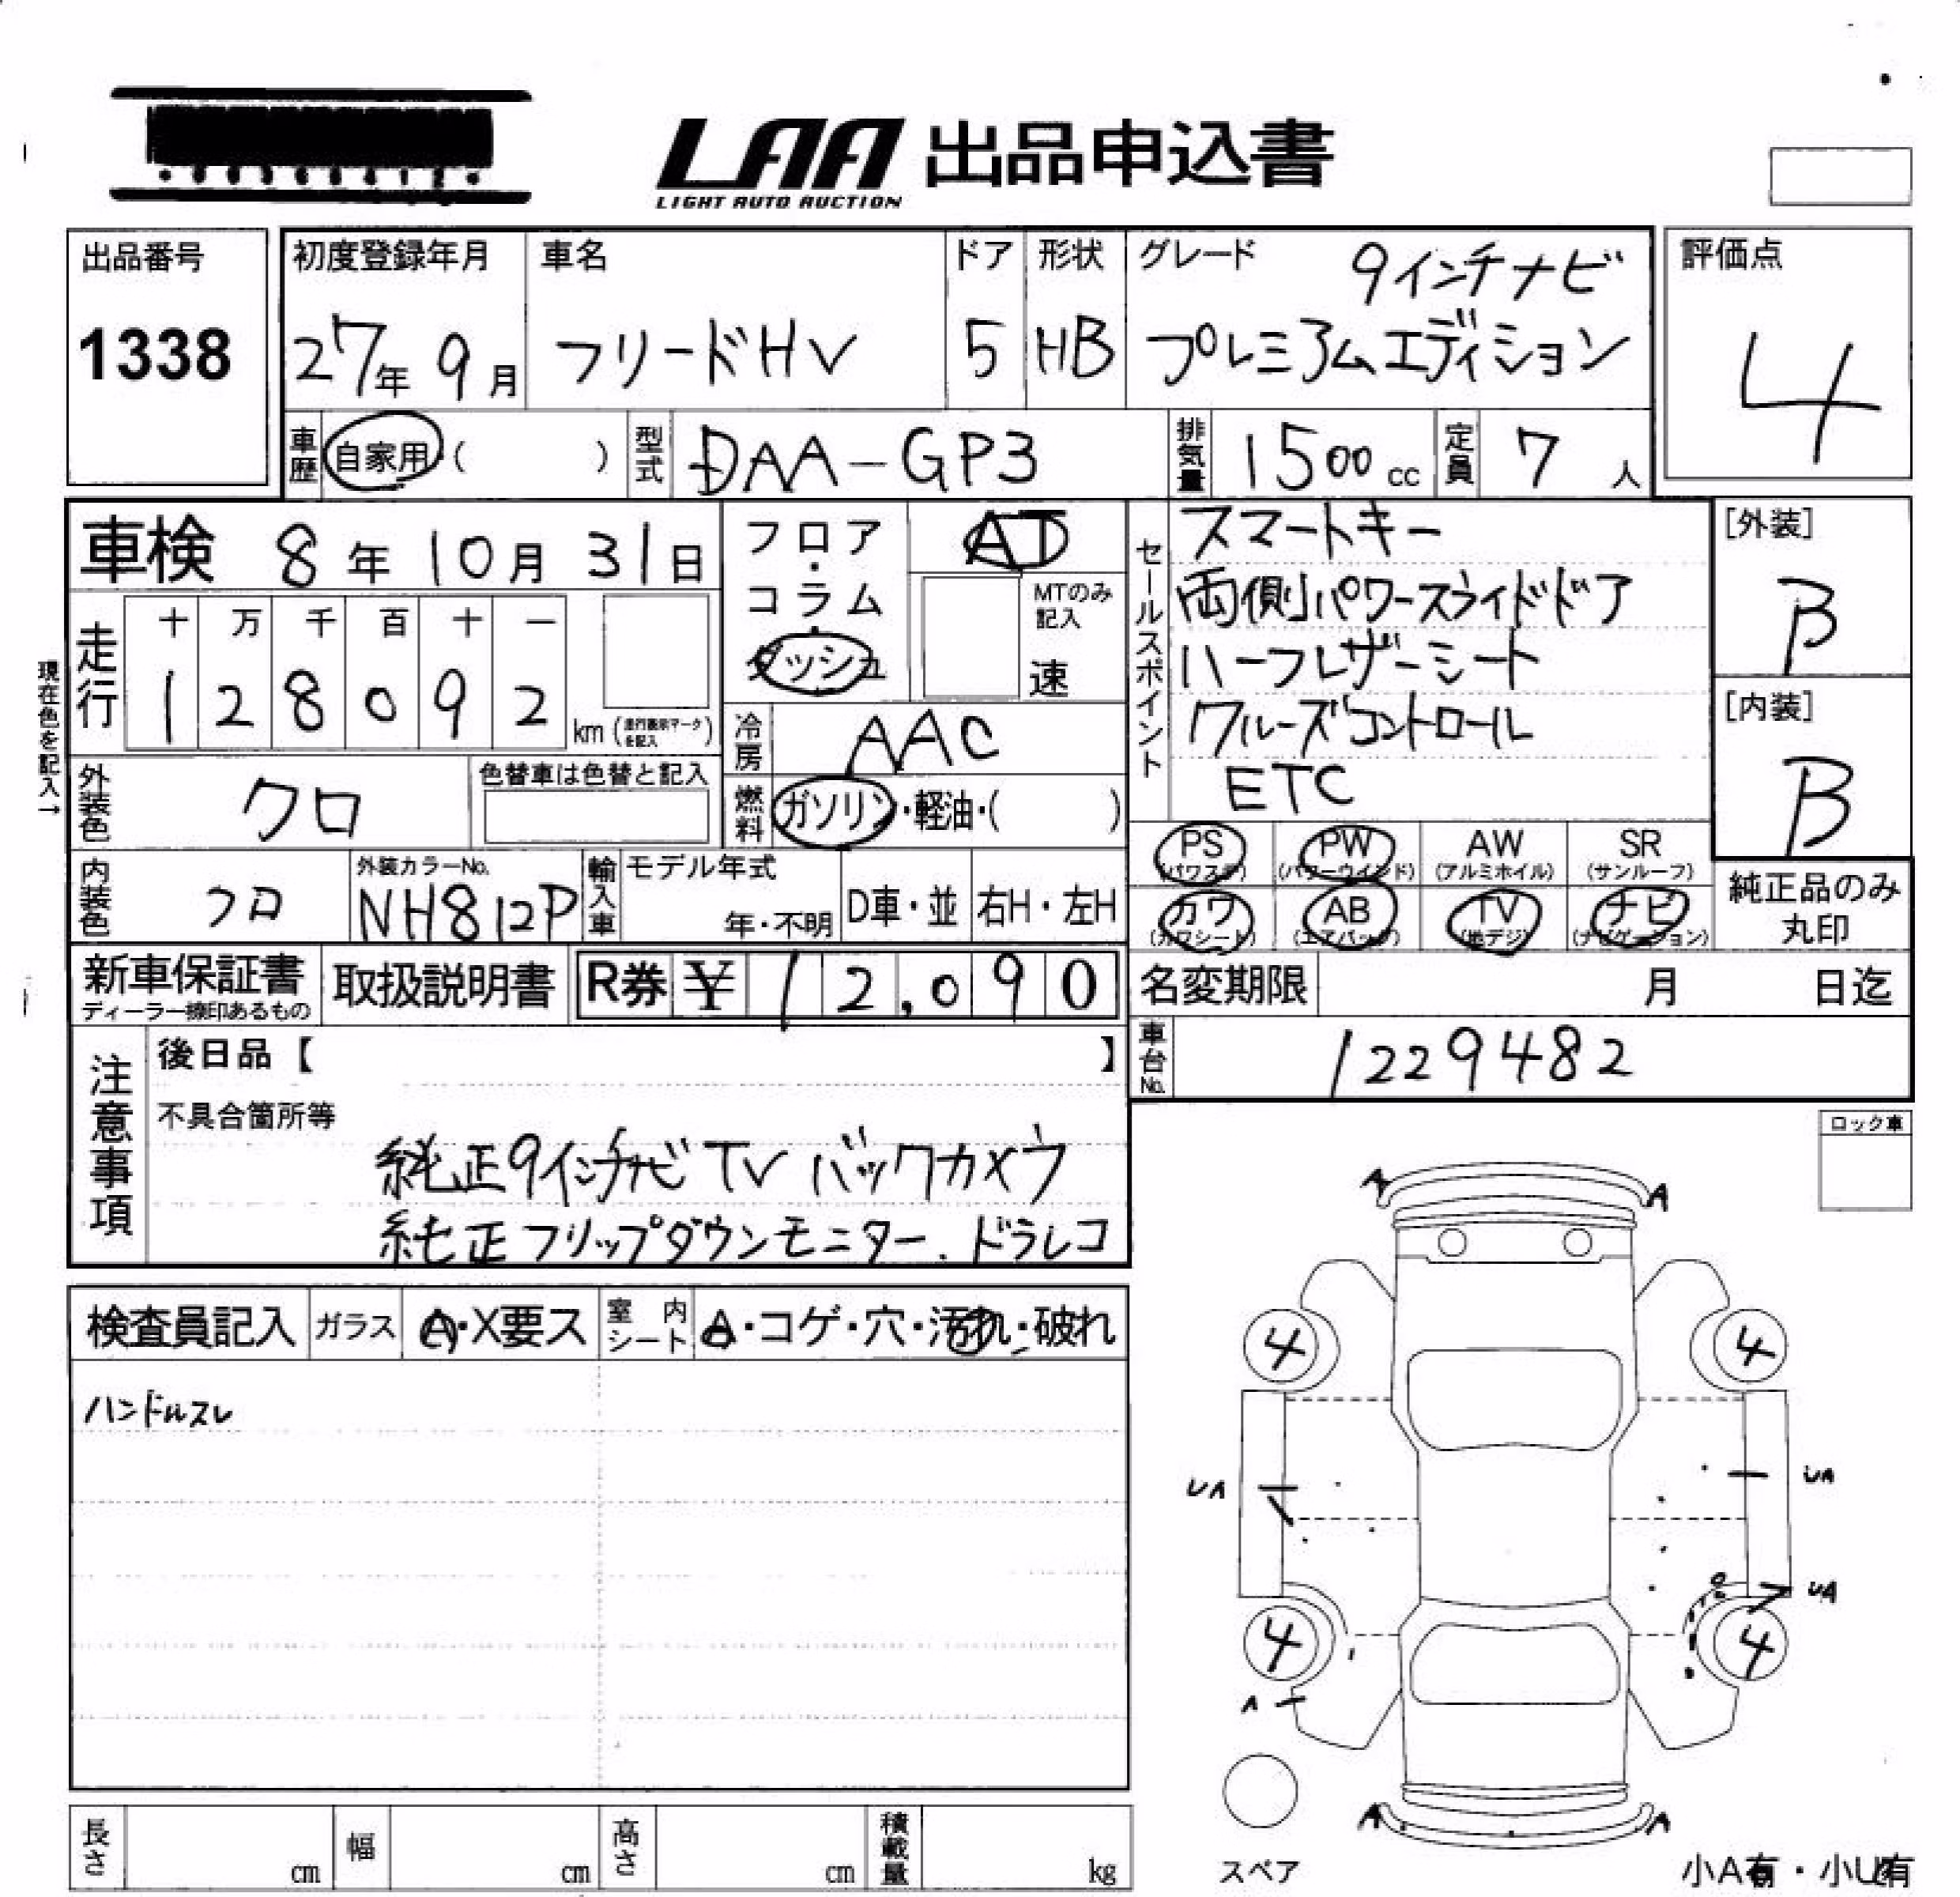 LAA 出品申込書
LIGHT AUTO AUCTION
出品番号
1338
初度登録年月
27年 9月
車名
フリードHV
ドア
5
形状
HB
グレード
9インチナビ
プレミアムエディション
評価点
4
車歴 自家用 ( )
型式 DAA-GP3
排気量 1500 cc
定員 7 人
車検 8年 10月 31日
フロア・コラム・ダッシュ
AT
MTのみ記入
速
現在色を記入→
走行
十 万 千 百 十 一
1 2 8 0 9 2
km (走行表示マークを記入)
冷房 AAC
外装色 クロ
色替車は色替と記入
燃料 ガソリン・軽油・( )
内装色 クロ
外装カラーNo.
NH812P
輸入車
モデル年式
年・不明
D車・並
右H・左H
セールスポイント
スマートキー
両側パワースライドドア
ハーフレザーシート
クルーズコントロール
ETC
[外装]
B
[内装]
B
PS (パワステ)
PW (パワーウインド)
AW (アルミホイル)
SR (サンルーフ)
カワ (カワシート)
AB (エアバッグ)
TV (地デジ)
ナビ (ナビゲーション)
純正品のみ
丸印
新車保証書
ディーラー捺印あるもの
取扱説明書
R券 ¥ 12,090
名変期限 月 日迄
車台No. 1229482
注意事項
後日品【 】
不具合箇所等
純正9インチナビ TV バックカメラ
純正フリップダウンモニター、ドラレコ
ロック車
検査員記入
ガラス A・X要ス
室内シート A・コゲ・穴・汚れ・破れ
ハンドルスレ
A A
4 4
UA UA
UA
4 4
A
A A
スペア
小A有・小U有
長さ cm
幅 cm
高さ cm
積載量 kg